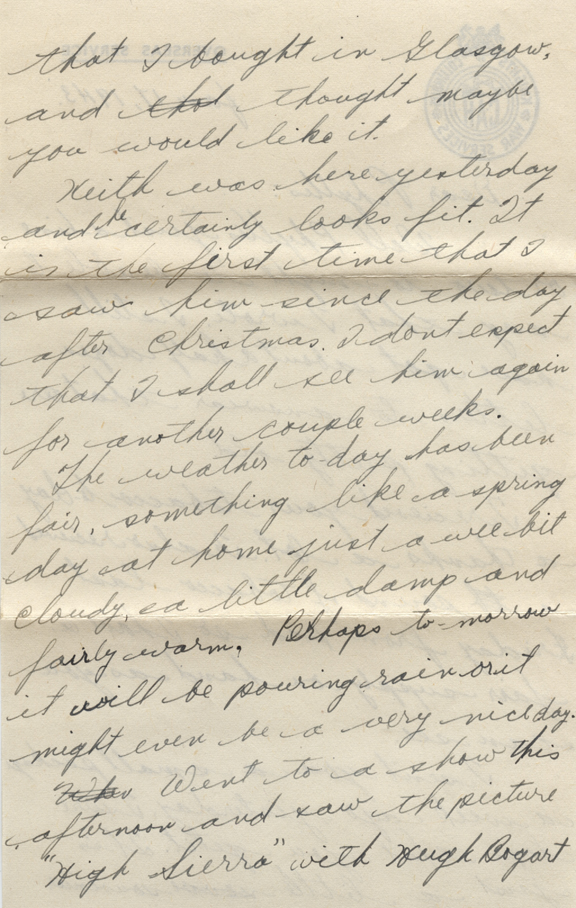 that I bought in Glasgow,
and thot thought maybe
you would like it.
Keith was here yesterday
and he certainly looks fit. It
is the first time that I
saw him since the day
after Christmas. I dont expect
that I shall see him again
for another couple weeks.
The weather to-day has been
fair, something like a spring
day at home just a wee bit
cloudy, a little damp and
fairly warm. Perhaps to-morrow
it will be pouring rain or it
might even be a very nice day.
Went to a show this
afternoon and saw the picture
"High Sierra" with Hugh Bogart